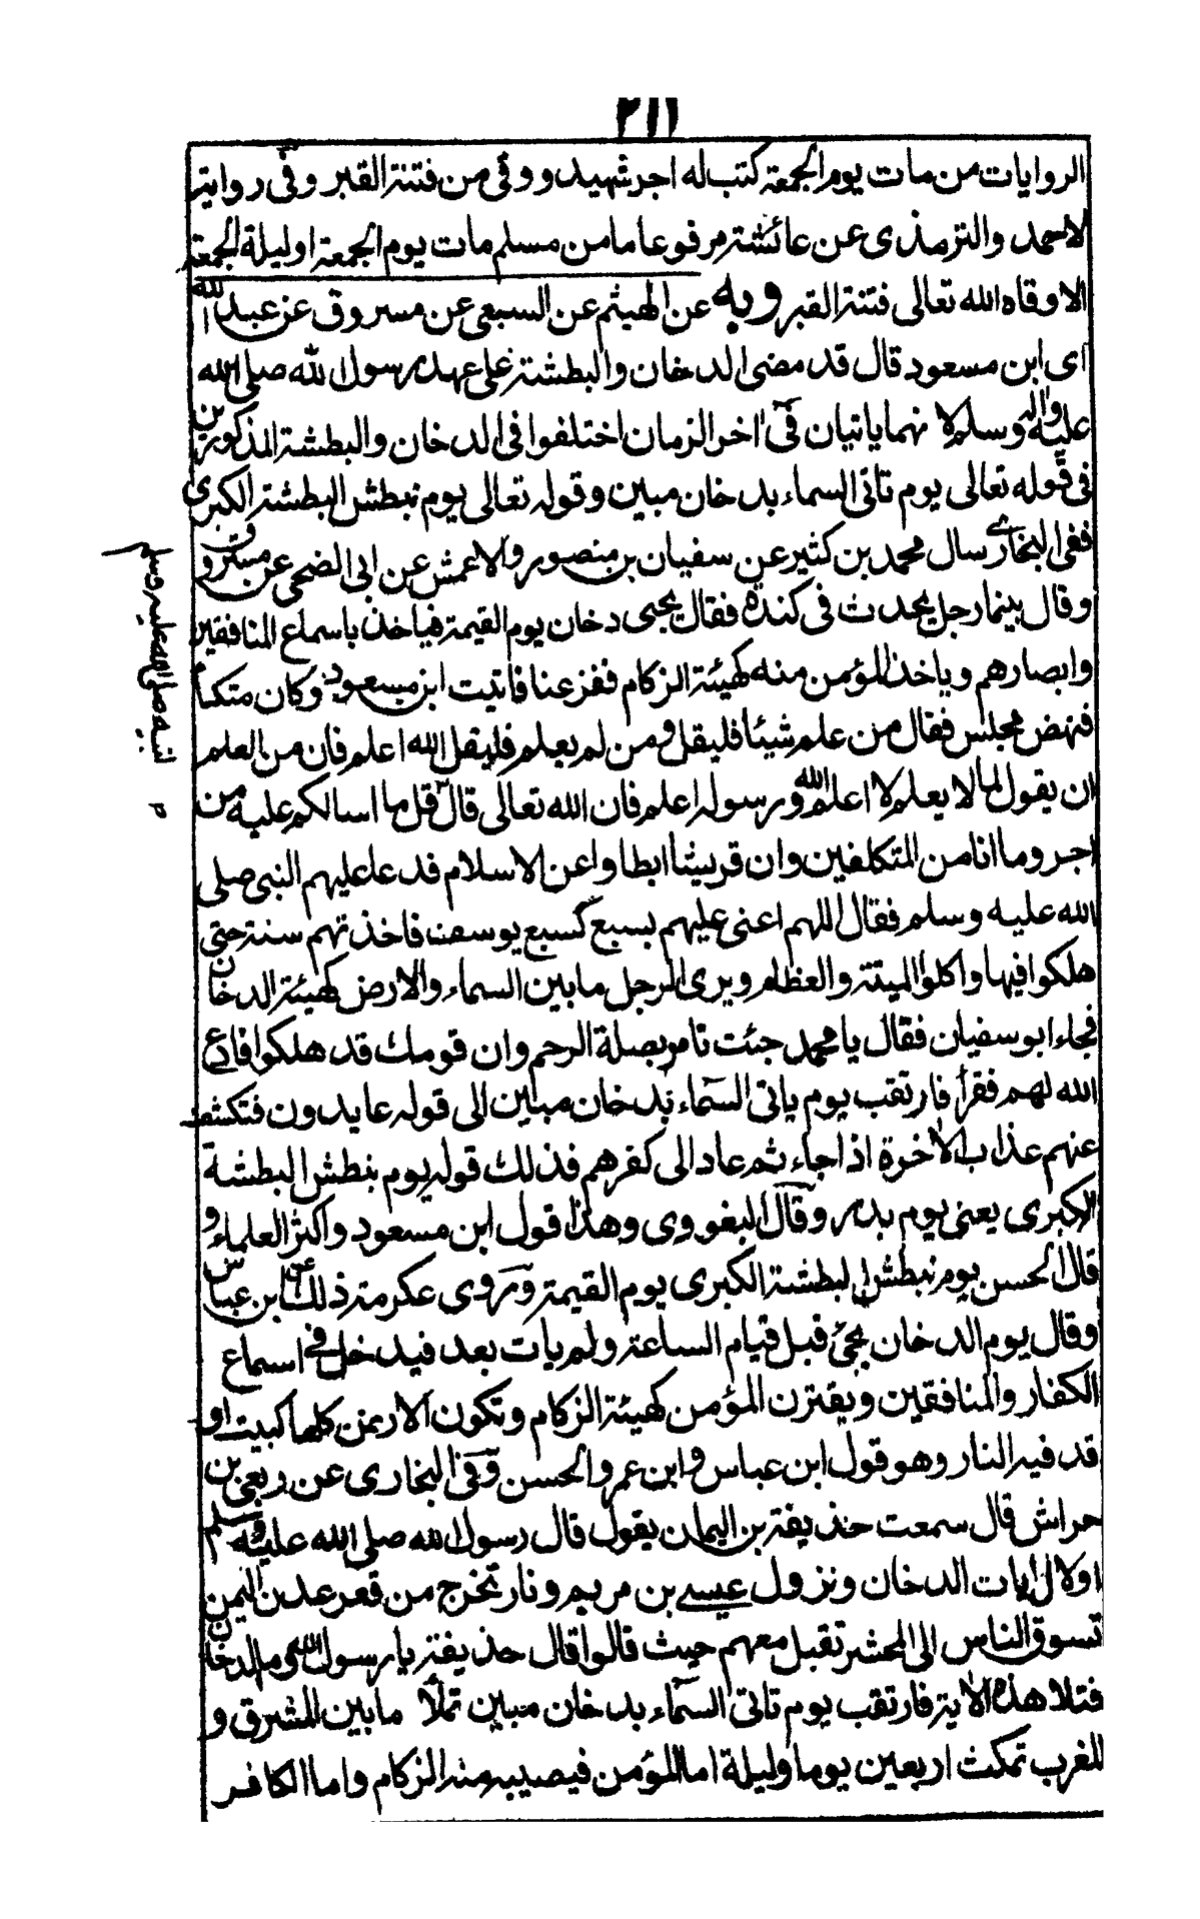 ٢١١
الروايات من مات يوم الجمعة كتب له اجر شهيد ووقى من فتنة القبر وفى رواية
لاحمد والترمذى عن عائشة مرفوعا ما من مسلم مات يوم الجمعة او ليلة الجمعة
الا وقاه الله تعالى فتنة القبر وبه عن الهيثم عن السبعى عن مسروق عن عبد الله
اى ابن مسعود قال قد مضى الدخان والبطشة على عهد رسول الله صلى الله
عليه واله وسلم لا نهما ياتيان فى اخر الزمان اختلفوا فى الدخان والبطشة المذكورين
فى قوله تعالى يوم تاتى السماء بدخان مبين وقوله تعالى يوم نبطش البطشة الكبرى
ففى البخارى سال محمد بن كثير عن سفيان بن منصور والاعمش عن ابى الضحى عن مسروق
وقال بينما رجل يحدث فى كندة فقال يجيى دخان يوم القيمة فياخذ باسماع المنافقين
وابصارهم وياخذ المؤمن منه كهيئة الزكام ففزعنا فاتيت ابن مسعود وكان متكأ
فنهض مجلس فقال من علم شيئا فليقل ومن لم يعلم فليقل الله اعلم فان من العلم
ان يقول لما لا يعلم لا اعلم الله ورسوله اعلم فان الله تعالى قال قل ما اسالكم عليه من
اجر وما انا من المتكلفين وان قريشا ابطاوا عن الاسلام فدعا عليهم النبى صلى
الله عليه وسلم فقال اللهم اعنى عليهم بسبع كسبع يوسف فاخذتهم سنة حتى
هلكوا فيها واكلوا الميتة والعظام ويرى الرجل ما بين السماء والارض كهيئة الدخان
فجاء ابو سفيان فقال يا محمد جئت تامر بصلة الرحم وان قومك قد هلكوا فادع
الله لهم فقرأ فارتقب يوم ياتى السماء بدخان مبين الى قوله عايدون فتكشف
عنهم عذاب الاخرة اذا جاء ثم عاد الى كفرهم فذلك قوله يوم نبطش البطشة
الكبرى يعنى يوم بدر وقال البغووى وهذا قول ابن مسعود واكثر العلماء و
قال الحسن يوم نبطش البطشة الكبرى يوم القيمة وروى عكرمة ذلك عن ابن عباس
وقال يوم الدخان يجئ قبل قيام الساعة ولم يات بعد فيدخل فى اسماع
الكفار والمنافقين ويقترن المؤمن كهيئة الزكام وتكون الارض كلها كبيت او
قد فيه النار وهو قول ابن عباس وابن عمر والحسن وفى البخارى عن ربعى بن
حراش قال سمعت حذيفة بن اليمان يقول قال رسول الله صلى الله عليه وسلم
اول الايات الدخان ونزول عيسے بن مريم ونار تخرج من قعر عدن اليمن
تسوق الناس الى المحشر تقبل معهم حيث قالوا قال حذيفة يا رسول الله وما الدخان
فتلا هذه الاية فارتقب يوم تاتى السماء بدخان مبين تملأ ما بين المشرق و
المغرب تمكث اربعين يوما وليلة اما المؤمن فيصيبه منه الزكام واما الكافر
لنبيه صلى الله عليه وسلم